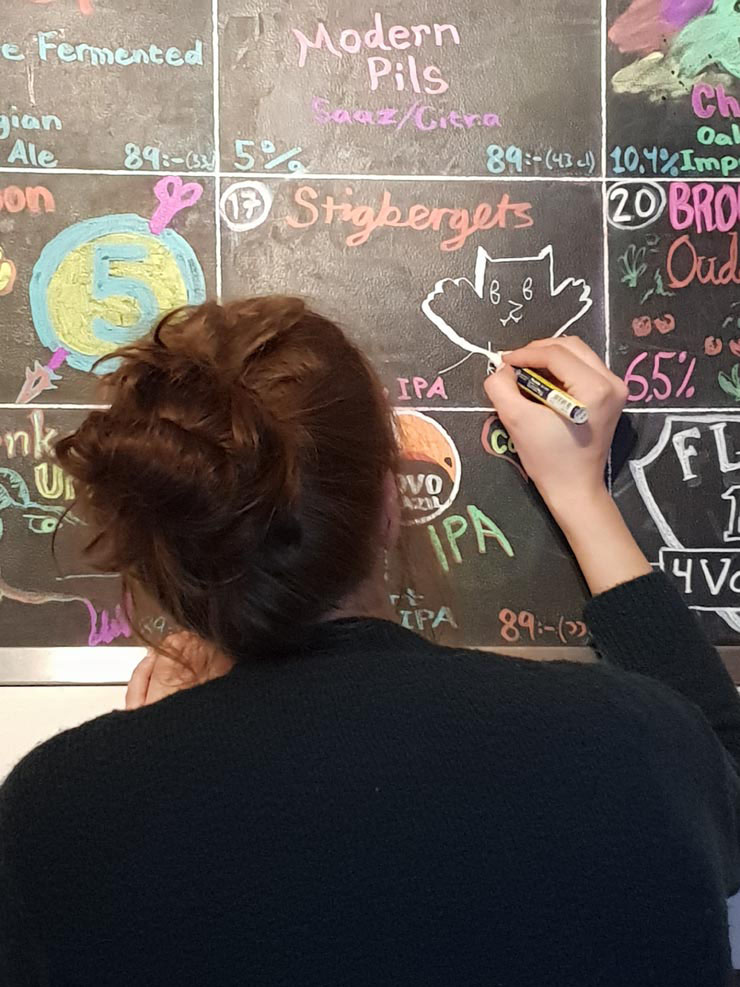 e Fermented
gian
Ale
89:-(33
Modern
Pils
Saaz/Citra
5%
89:-(43 cl)
Ch
Oa
10,4% Imp
on
5
17
Stigbergets
IPA
20
BRO
Oud
6,5%
nk
Un
OVO
AZIL
IPA
IPA
89:-(33
FL
1
4 Vo